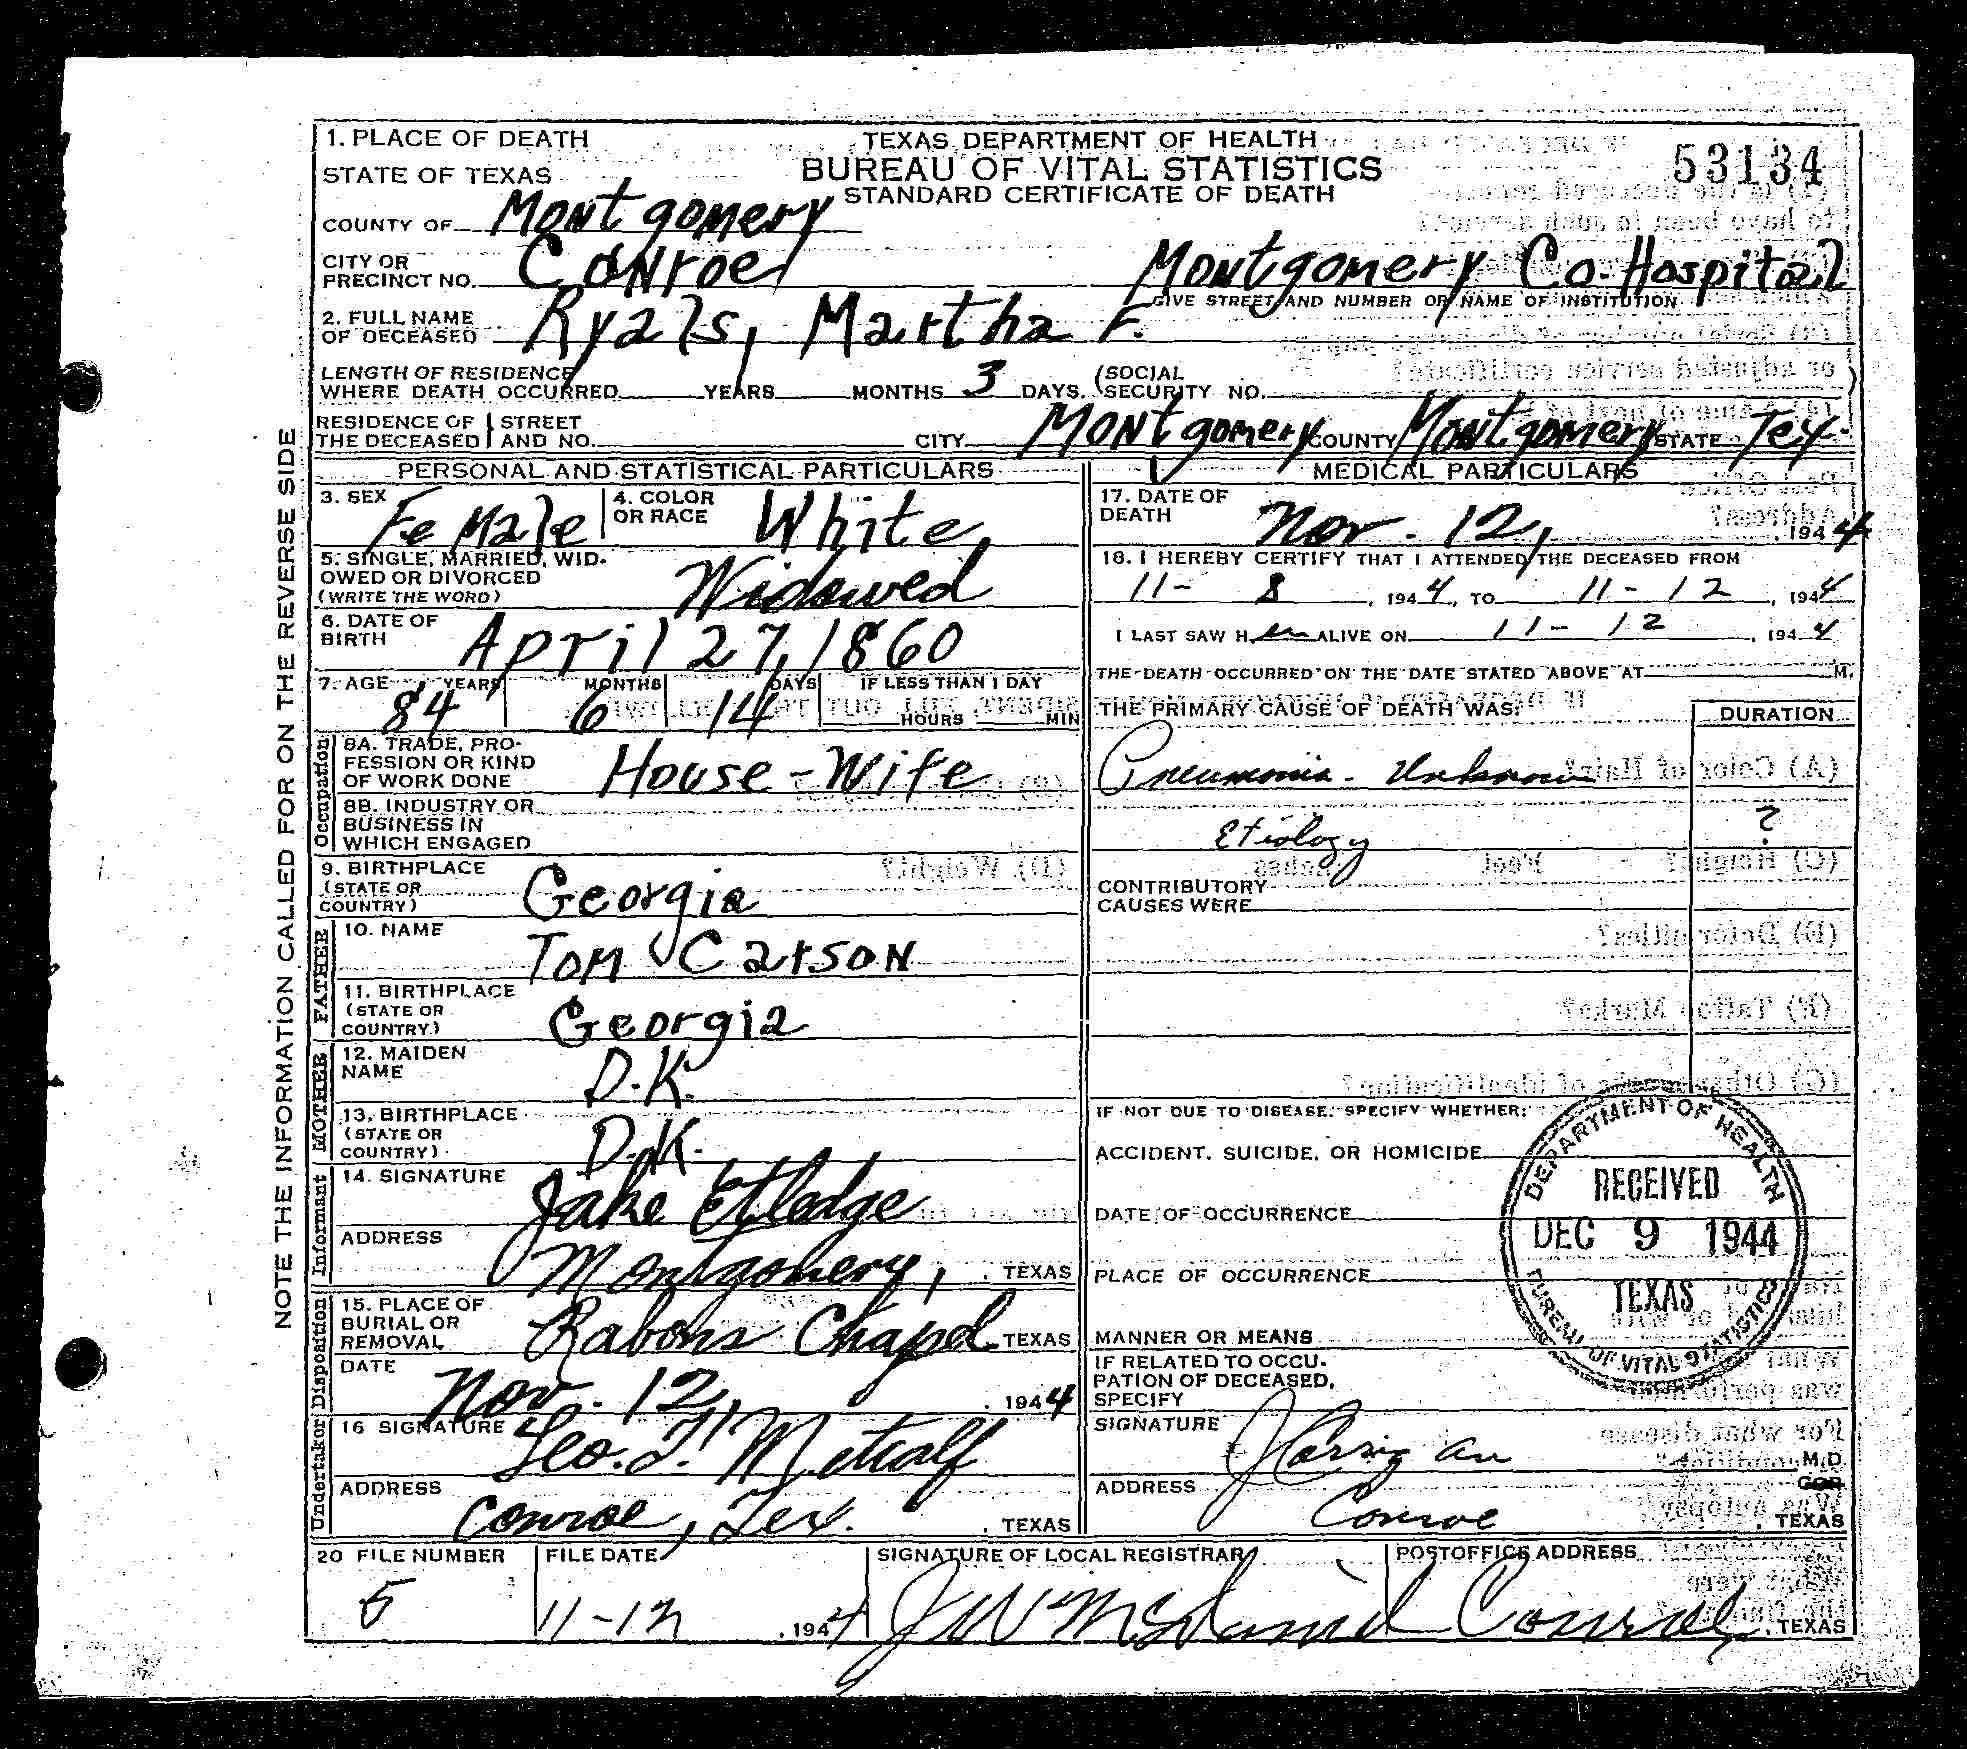 1. PLACE OF DEATH
TEXAS DEPARTMENT OF HEALTH
BUREAU OF VITAL STATISTICS
STANDARD CERTIFICATE OF DEATH
53134
STATE OF TEXAS
COUNTY OF Montgomery
CITY OR PRECINCT NO. Conroe Montgomery Co. Hospital
GIVE STREET AND NUMBER OR NAME OF INSTITUTION
2. FULL NAME OF DECEASED Ryals, Martha F.
LENGTH OF RESIDENCE WHERE DEATH OCCURRED YEARS MONTHS 3 DAYS. (SOCIAL SECURITY NO.
RESIDENCE OF THE DECEASED STREET AND NO. CITY Montgomery COUNTY Montgomery STATE Tex.
NOTE THE INFORMATION CALLED FOR ON THE REVERSE SIDE
PERSONAL AND STATISTICAL PARTICULARS
3. SEX Female 4. COLOR OR RACE White
5. SINGLE, MARRIED, WIDOWED OR DIVORCED (WRITE THE WORD) Widowed
6. DATE OF BIRTH April 27, 1860
7. AGE YEARS MONTHS DAYS IF LESS THAN 1 DAY
84 6 14 HOURS MIN
Occupation
8A. TRADE, PROFESSION OR KIND OF WORK DONE House-Wife
8B. INDUSTRY OR BUSINESS IN WHICH ENGAGED
9. BIRTHPLACE (STATE OR COUNTRY) Georgia
FATHER
10. NAME Tom Carson
11. BIRTHPLACE (STATE OR COUNTRY) Georgia
MOTHER
12. MAIDEN NAME D.K.
13. BIRTHPLACE (STATE OR COUNTRY) D.K.
Informant
14. SIGNATURE Jake Etledge
ADDRESS Montgomery, TEXAS
Disposition
15. PLACE OF BURIAL OR REMOVAL Rabons Chapel TEXAS
DATE Nov. 12, 1944
Undertaker
16 SIGNATURE Geo. T. Metcalf
ADDRESS Conroe, Tex. , TEXAS
MEDICAL PARTICULARS
17. DATE OF DEATH Nov. 12, 1944
18. I HEREBY CERTIFY THAT I ATTENDED THE DECEASED FROM
11- 8 , 1944, TO 11-12 , 1944
I LAST SAW Her ALIVE ON 11-12 , 1944
THE DEATH OCCURRED ON THE DATE STATED ABOVE AT M.
THE PRIMARY CAUSE OF DEATH WAS: DURATION
Pneumonia - Unknown
Etiology ?
CONTRIBUTORY CAUSES WERE
IF NOT DUE TO DISEASE, SPECIFY WHETHER:
ACCIDENT, SUICIDE, OR HOMICIDE
DATE OF OCCURRENCE
PLACE OF OCCURRENCE
MANNER OR MEANS
IF RELATED TO OCCUPATION OF DECEASED, SPECIFY
DEPARTMENT OF HEALTH
RECEIVED
DEC 9 1944
TEXAS
BUREAU OF VITAL STATISTICS
SIGNATURE M.D.
ADDRESS Conroe , TEXAS
20 FILE NUMBER FILE DATE SIGNATURE OF LOCAL REGISTRAR POSTOFFICE ADDRESS
5 11-12 , 1944 Conroe, TEXAS